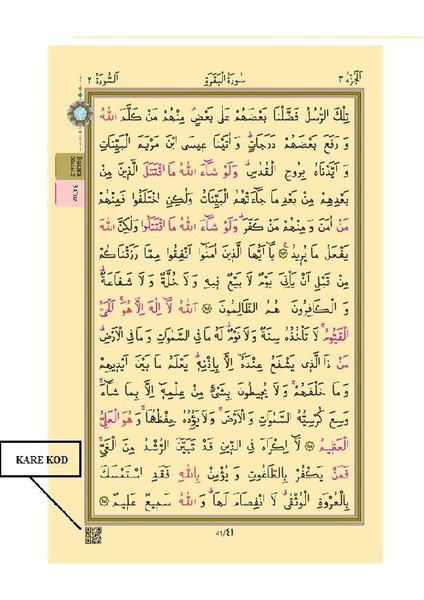 الجزء ٣
سورة البقرة
السورة ٢
تِلْكَ الرُّسُلُ فَضَّلْنَا بَعْضَهُمْ عَلٰى بَعْضٍ مِنْهُمْ مَنْ كَلَّمَ اللّٰهُ
وَ رَفَعَ بَعْضَهُمْ دَرَجَاتٍ وَ اٰتَيْنَا عِيسَى ابْنَ مَرْيَمَ الْبَيِّنَاتِ
وَ اَيَّدْنَاهُ بِرُوحِ الْقُدُسِ وَلَوْ شَٓاءَ اللّٰهُ مَا اقْتَتَلَ الَّذِينَ مِنْ
بَعْدِهِمْ مِنْ بَعْدِ مَا جَٓاءَتْهُمُ الْبَيِّنَاتُ وَلٰكِنِ اخْتَلَفُوا فَمِنْهُمْ
مَنْ اٰمَنَ وَ مِنْهُمْ مَنْ كَفَرَ وَلَوْ شَٓاءَ اللّٰهُ مَا اقْتَتَلُوا وَلٰكِنَّ اللّٰهَ
يَفْعَلُ مَا يُرِيدُ ﴿٢٥٣﴾ يَٓا اَيُّهَا الَّذِينَ اٰمَنُٓوا اَنْفِقُوا مِمَّا رَزَقْنَاكُمْ
مِنْ قَبْلِ اَنْ يَأْتِيَ يَوْمٌ لَا بَيْعٌ فِيهِ وَ لَا خُلَّةٌ وَ لَا شَفَاعَةٌ
وَ الْكَافِرُونَ هُمُ الظَّالِمُونَ ﴿٢٥٤﴾ اَللّٰهُ لَٓا اِلٰهَ اِلَّا هُوَ اَلْحَيُّ
الْقَيُّومُ لَا تَأْخُذُهُ سِنَةٌ وَلَا نَوْمٌ لَهُ مَا فِي السَّمٰوَاتِ وَمَا فِي الْاَرْضِ
مَنْ ذَا الَّذِي يَشْفَعُ عِنْدَهُٓ اِلَّا بِاِذْنِهِ يَعْلَمُ مَا بَيْنَ اَيْدِيهِمْ
وَ مَا خَلْفَهُمْ وَ لَا يُحِيطُونَ بِشَيْءٍ مِنْ عِلْمِهِٓ اِلَّا بِمَا شَٓاءَ
وَسِعَ كُرْسِيُّهُ السَّمٰوَاتِ وَ الْاَرْضَ وَلَا يَؤُ۫دُهُ حِفْظُهُمَا وَ هُوَ الْعَلِيُّ
الْعَظِيمُ ﴿٢٥٥﴾ لَٓا اِكْرَاهَ فِي الدِّينِ قَدْ تَبَيَّنَ الرُّشْدُ مِنَ الْغَيِّ
فَمَنْ يَكْفُرْ بِالطَّاغُوتِ وَ يُؤْمِنْ بِاللّٰهِ فَقَدِ اسْتَمْسَكَ
بِالْعُرْوَةِ الْوُثْقٰى لَا انْفِصَامَ لَهَا وَ اللّٰهُ سَمِيعٌ عَلِيمٌ ﴿٢٥٦﴾
Bakara
Sûresi 2
3.Cüz
KARE KOD
41/٤١